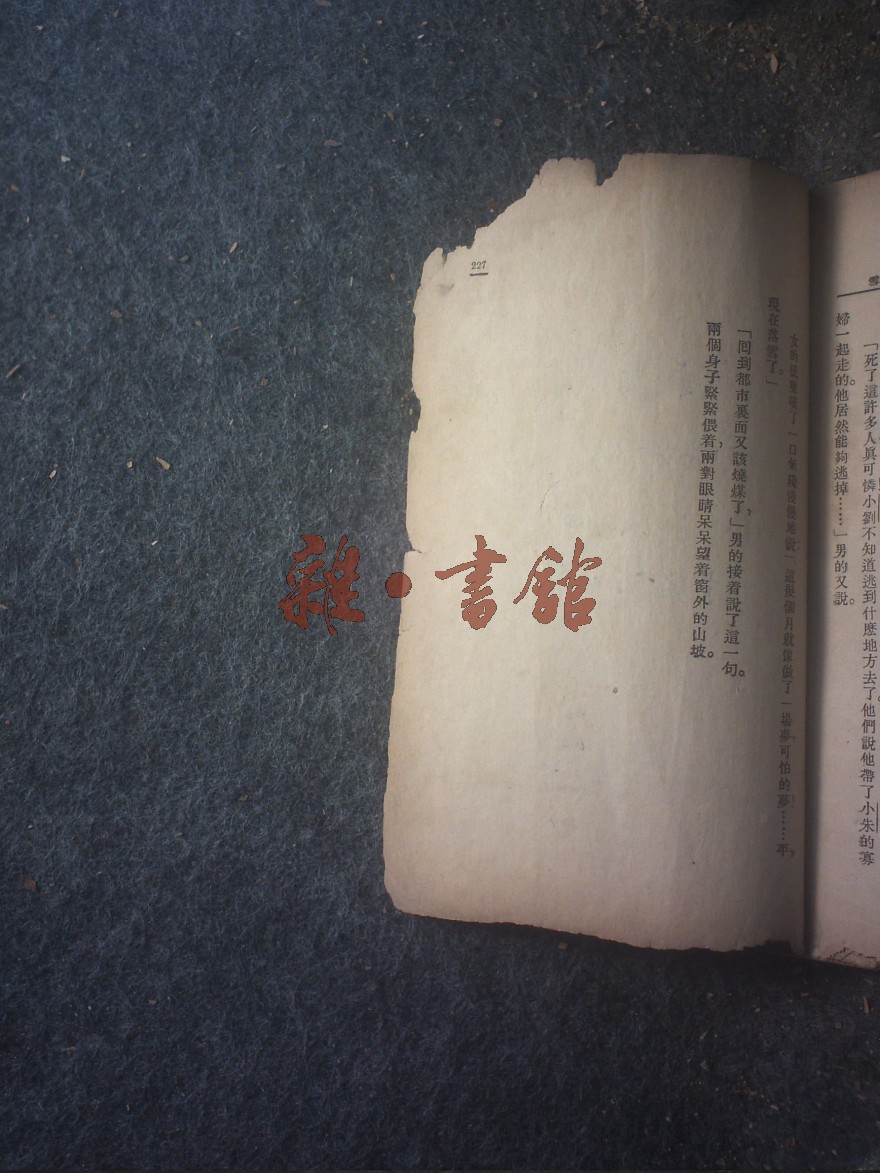 雪
「死了這許多人真可憐小劉不知道逃到什麽地方去了。他們說他帶了小朱的寡
婦一起走的。他居然能夠逃掉……」男的又說。
227
一口氣 地說「這幾個月就像做了一場夢，可怕的夢……平，
現在落雪了。」
「回到都市裏面又該燒煤了，」男的接着說了這一句。
兩個身子緊緊偎着，兩對眼睛呆呆望着窗外的山坡。
雜·書館